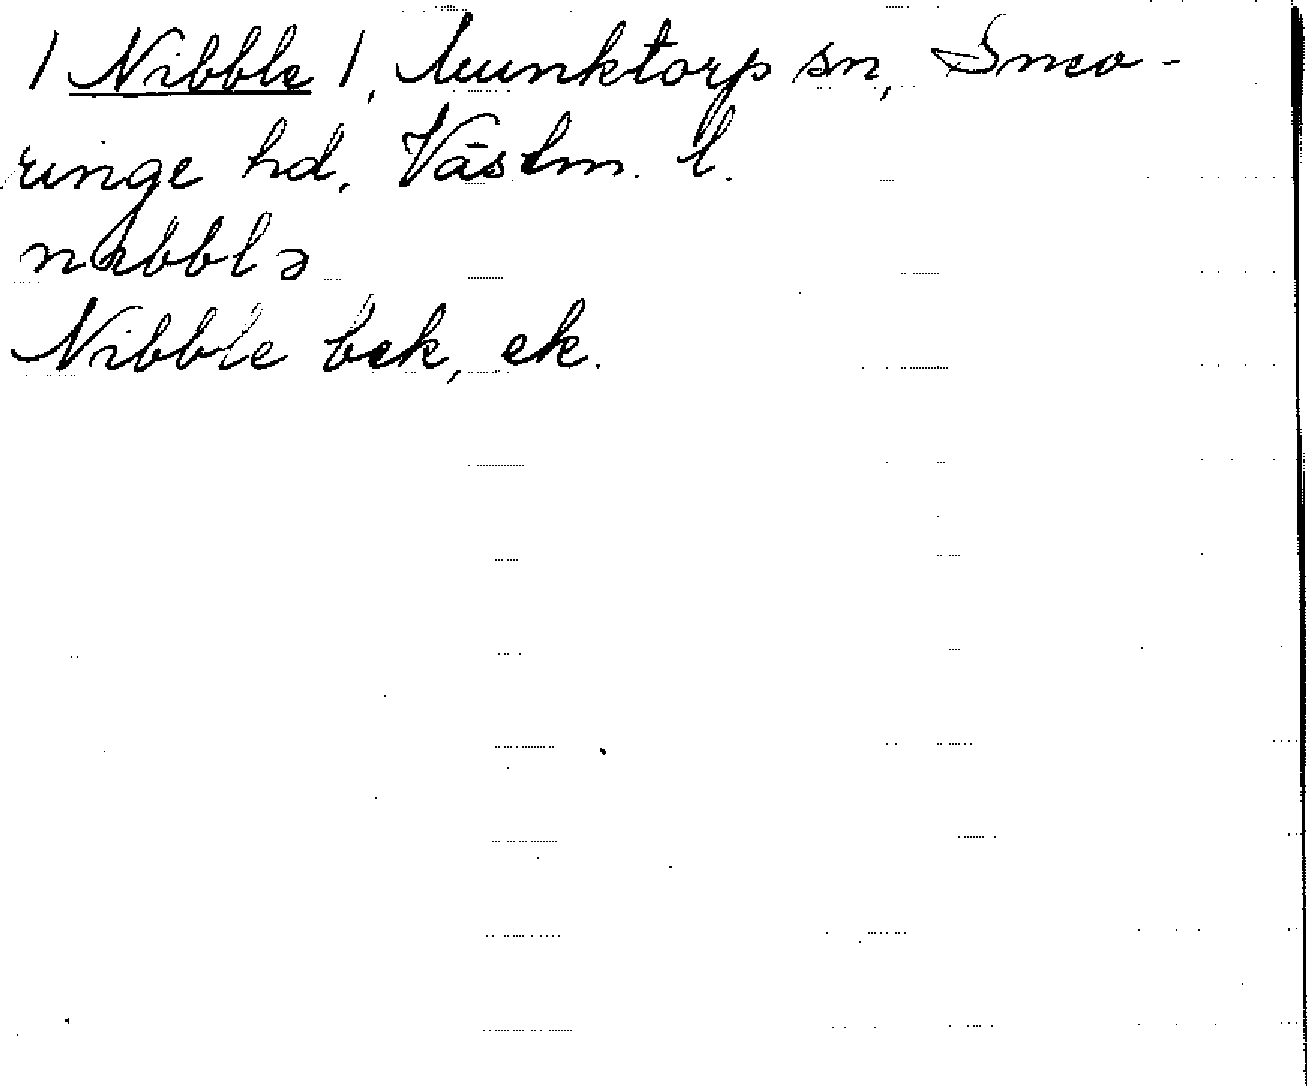 / Nibble /, Munktorp sn, Snev-
ringe hd, Västm. l.
nibblə
Nibble bek, ek.